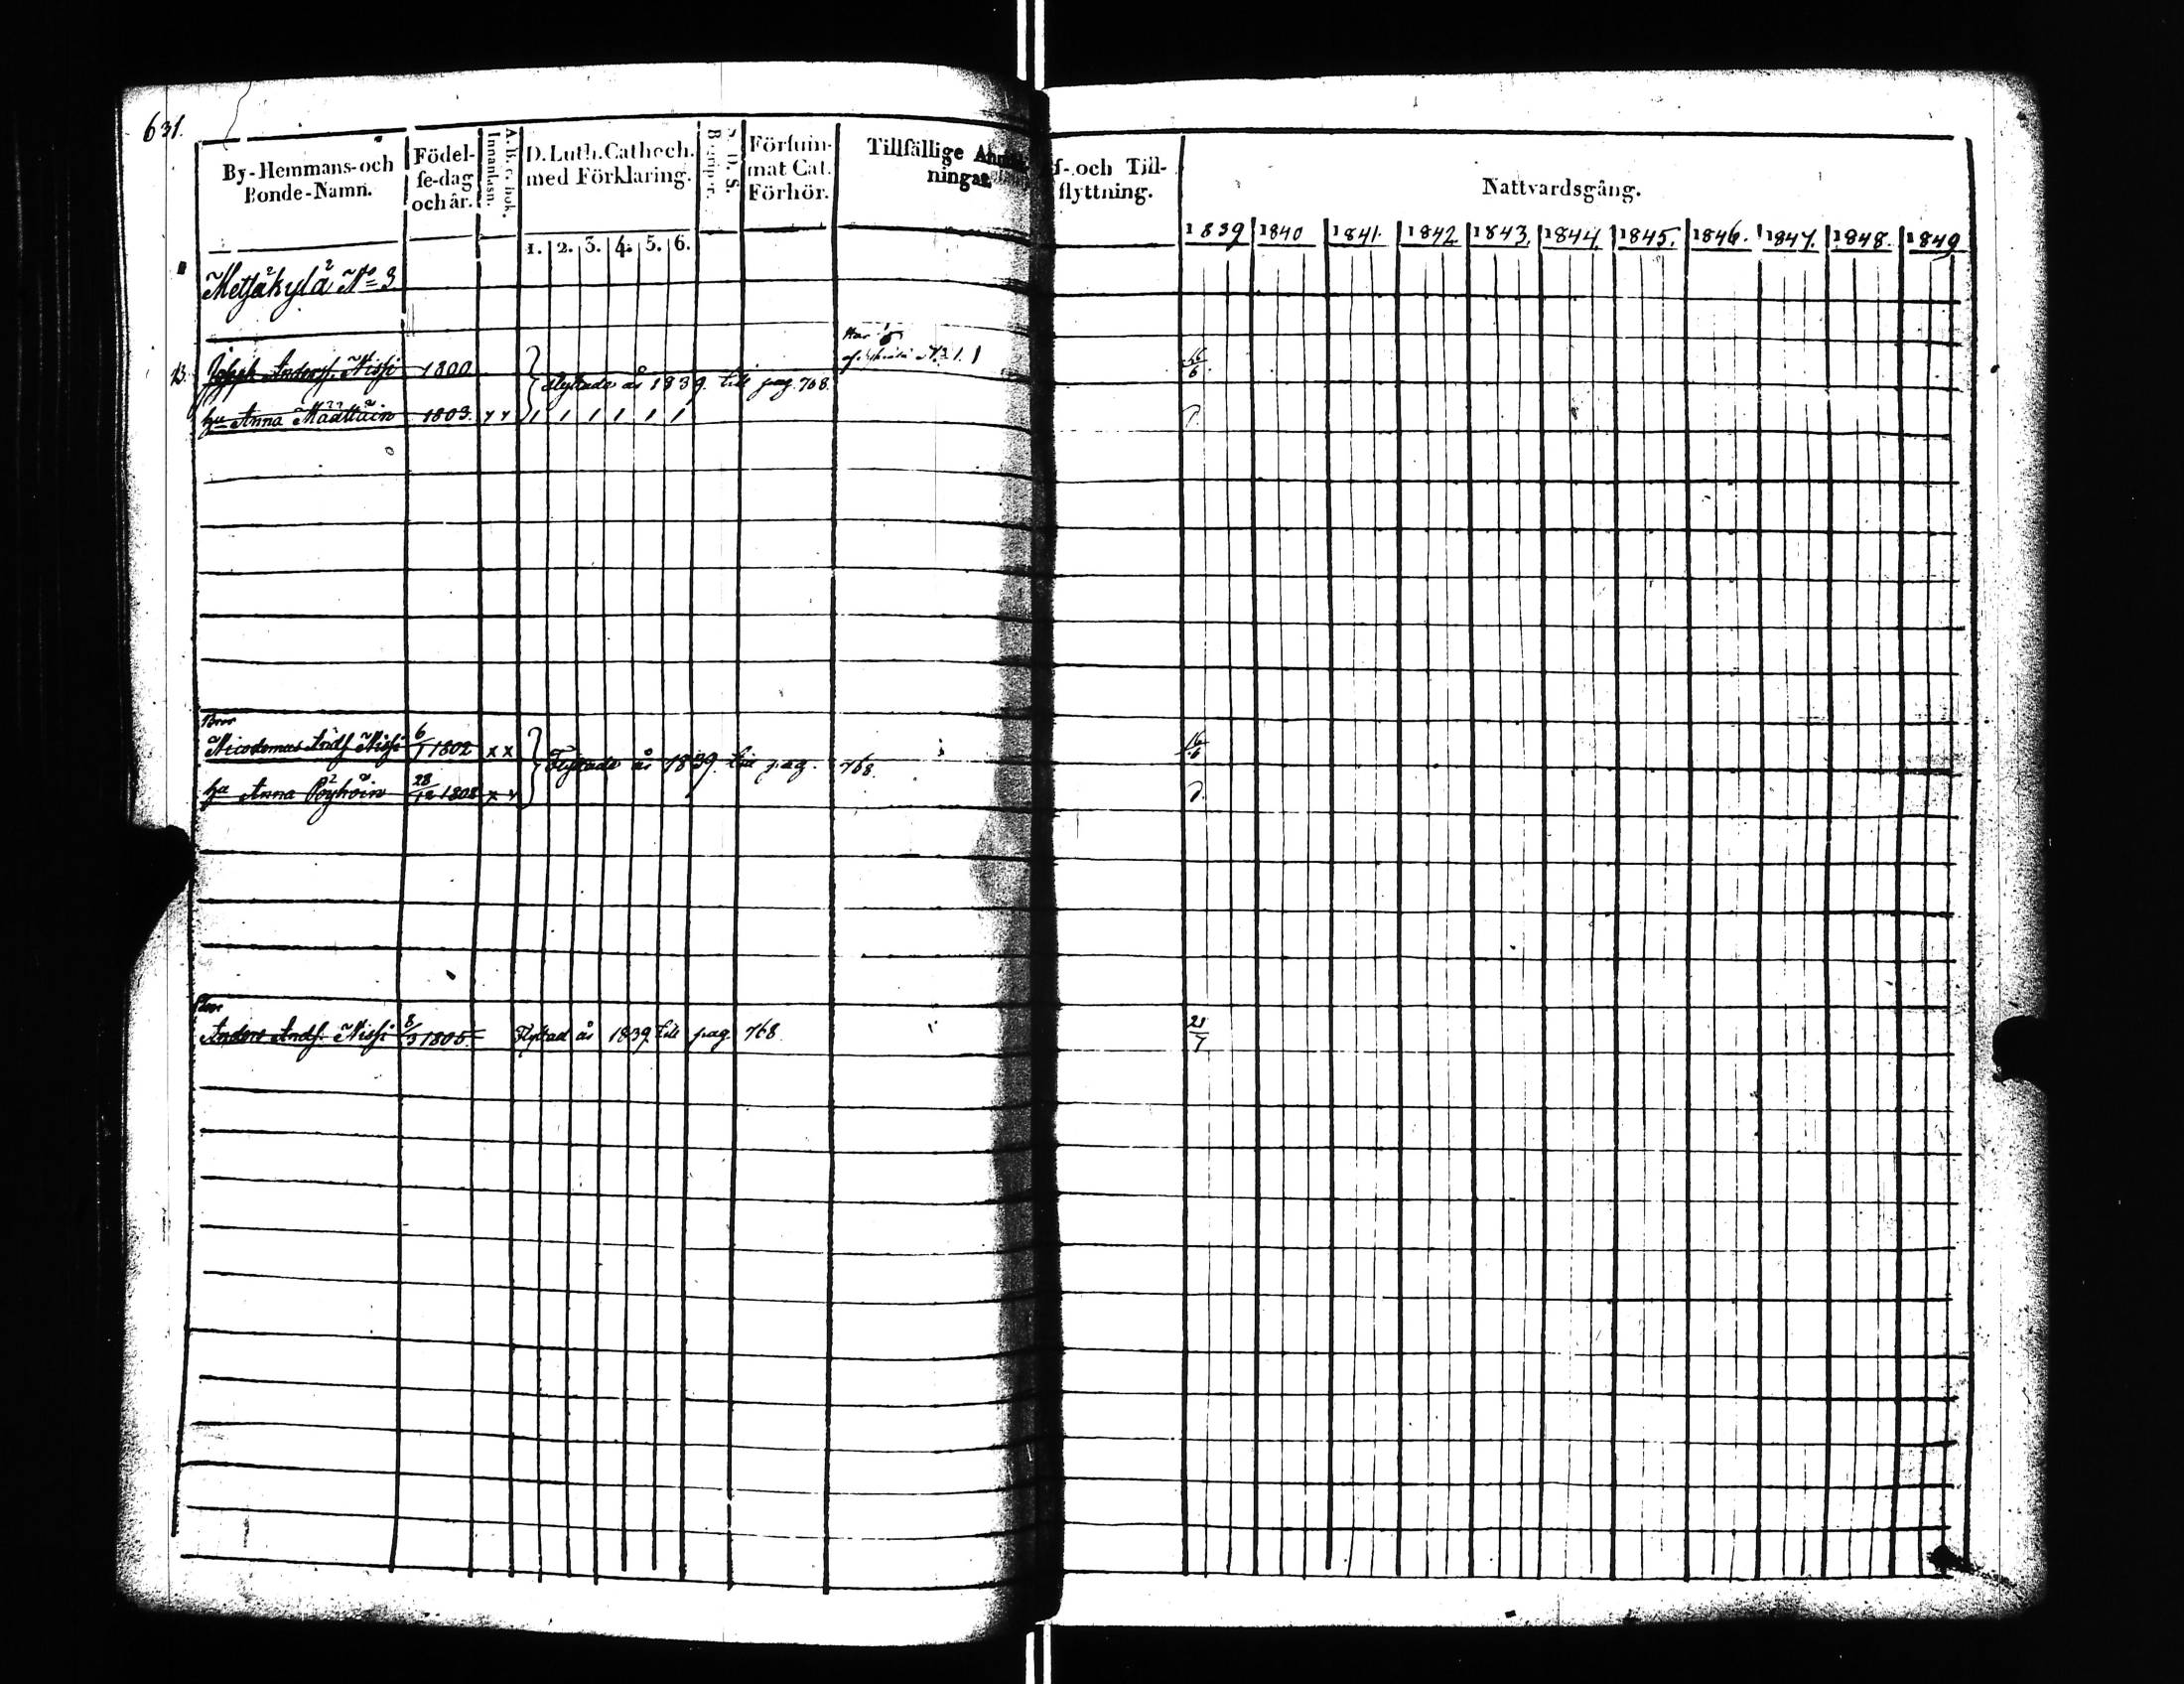 631.
By-Hemmans-och Bonde-Namn.
Födel-se-dag och år.
A. B. c. bok. Innanläsn.
D. Luth. Cathech. med Förklaring.
1. 2. 3. 4. 5. 6.
Försum-mat Cat. Förhör.
Tillfällige Anm ningar
f- och Till-flyttning.
Nattvardsgång.
1839 1840 1841. 1842 1843. 1844 1845. 1846. 1847. 1848. 1849
Metsäkylä No 3
13. Joseph Anders. Nissi 1800 16/6
Flyttade år 1839. till pag. 768.
hu Anna Määttäin 1803. x x 1 1 1 1 1 1
Bror
Nicodemus Ands. Nissi 6/1 1802 x x 16/6
Flyttade år 1839. till pag. 768.
hu Anna Pöyhöin 28/12 1808 x x
Bror
Anders Ands. Nissi 8/3 1805. Flyttad år 1839 till pag. 768. 21/7